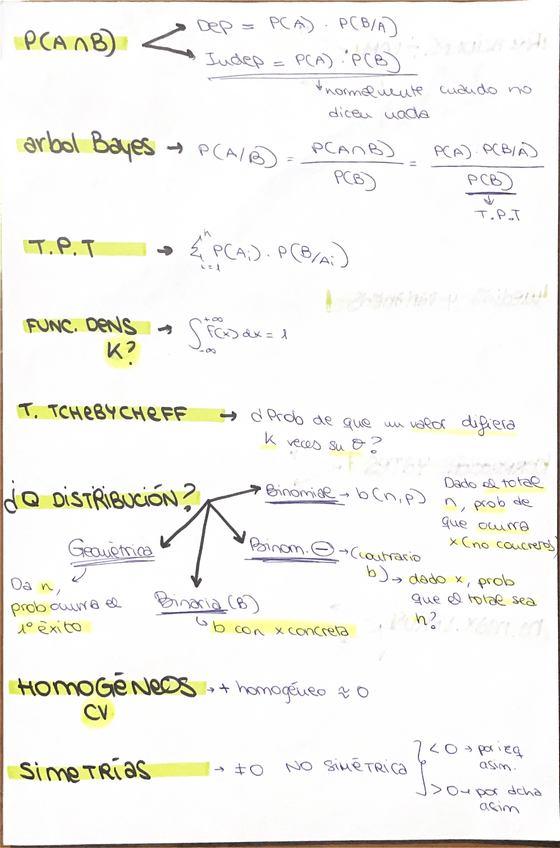 P(A∩B) Dep = P(A) · P(B/A)
Indep = P(A) · P(B)
normalmente cuando no
dicen nada
arbol Bayes → P(A/B) = P(A∩B) / P(B) = P(A) · P(B/A) / P(B)
T.P.T
T.P.T → Σ i=1 n P(Ai) · P(B/Ai)
FUNC. DENS → ∫ -∞ +∞ f(x) dx = 1
K?
T. TCHEBYCHEFF → ¿Prob de que un valor difiera
K veces su σ?
¿Q DISTRIBUCIÓN? Binomial → b(n,p)
Dado el total
n, prob de
que ocurra
x (no concreto)
Geométrica
Da n,
prob ocurra el
1º éxito
Binaria (B)
↳ b con x concreta
Binom. ⊖ → (contrario
b) → dado x, prob
que el total sea
n?
HOMOGÉNEOS → + homogéneo ≈ 0
CV
SIMETRÍAS → ≠0 NO SIMÉTRICA
<0 → por izq
asim.
>0 → por dcha
asim